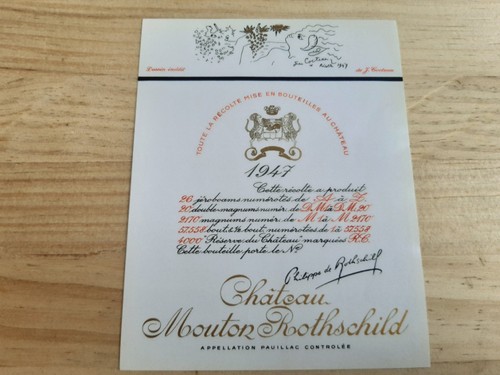 Jean Cocteau
Noël 1947
Dessin inédit de J. Cocteau
TOUTE LA RÉCOLTE MISE EN BOUTEILLES AU CHÂTEAU
1947
Cette récolte a produit
26 jéroboams numérotés de A à Z
20 double-magnums numér. de D.M. 1 à D.M. 20
2170 magnums numér. de M 1 à M 2170
57558 bout. & ½ bout. numérotées de 1 à 57558
4000 "Réserve du Château" marquées R.C.
Cette bouteille porte le No
Philippe de Rothschild
Château
Mouton Rothschild
APPELLATION PAUILLAC CONTROLÉE